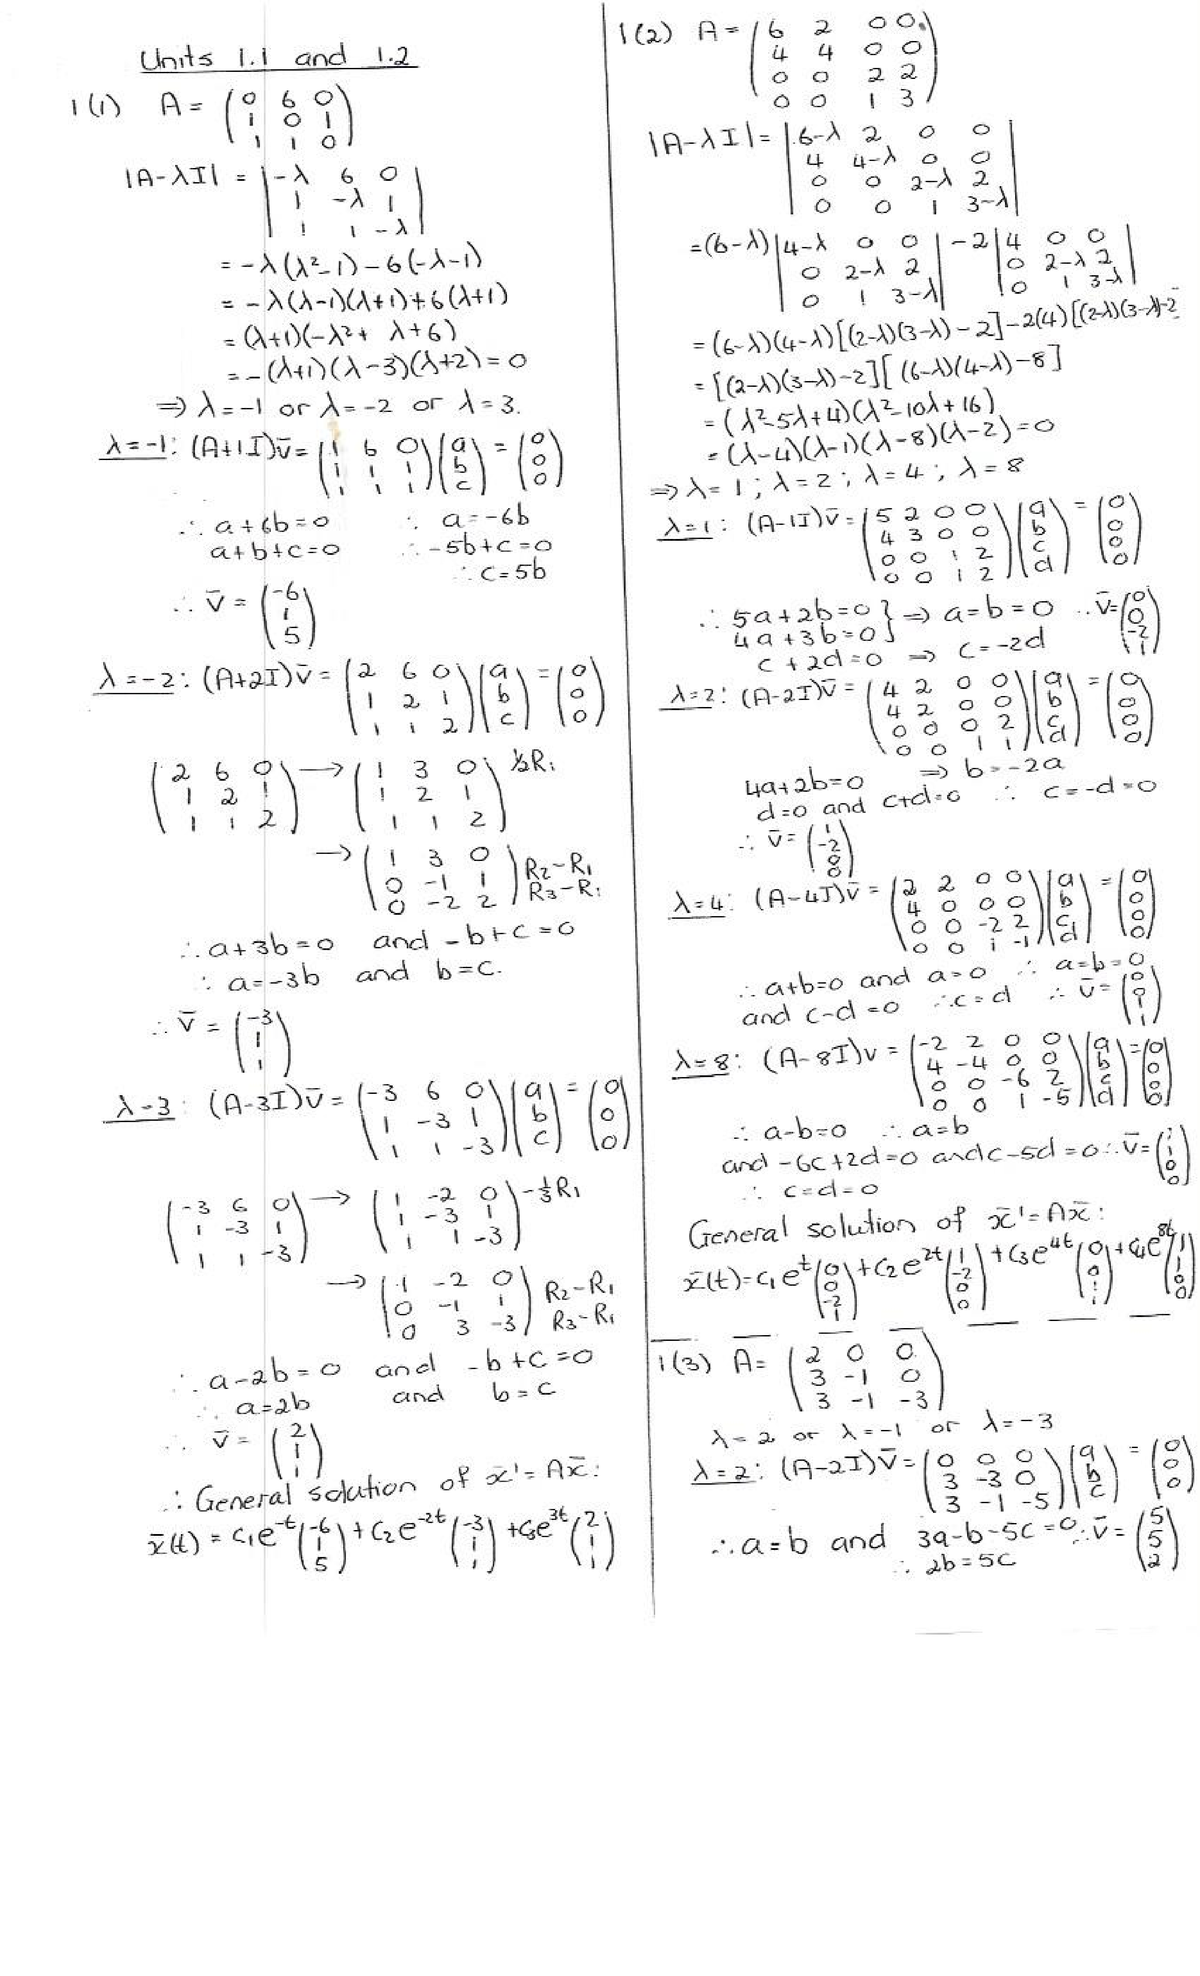 Units 1.1 and 1.2
1(1) A = (0 6 0
1 0 1
1 1 0)
|A-λI| = |-λ 6 0
1 -λ 1
1 1 -λ|
= -λ(λ²-1) - 6(-λ-1)
= -λ(λ-1)(λ+1) + 6(λ+1)
= (λ+1)(-λ² + λ + 6)
= -(λ+1)(λ-3)(λ+2) = 0
⇒ λ = -1 or λ = -2 or λ = 3.
λ = -1: (A+1I)v̄ = (1 6 0
1 1 1
1 1 1)(a
b
c) = (0
0
0)
∴ a+6b=0 ∴ a=-6b
a+b+c=0 ∴ -5b+c=0
∴ c=5b
∴ v̄ = (-6
1
5)
λ = -2: (A+2I)v̄ = (2 6 0
1 2 1
1 1 2)(a
b
c) = (0
0
0)
(2 6 0
1 2 1
1 1 2) → (1 3 0
1 2 1
1 1 2) ½R₁
→ (1 3 0
0 -1 1
0 -2 2) R₂-R₁
R₃-R₁
∴ a+3b=0 and -b+c=0
∴ a=-3b and b=c.
∴ v̄ = (-3
1
1)
λ=3: (A-3I)v̄ = (-3 6 0
1 -3 1
1 1 -3)(a
b
c) = (0
0
0)
(-3 6 0
1 -3 1
1 1 -3) → (1 -2 0
1 -3 1
1 1 -3) -⅓R₁
→ (1 -2 0
0 -1 1
0 3 -3) R₂-R₁
R₃-R₁
∴ a-2b=0 and -b+c=0
∴ a=2b and b=c
∴ v̄ = (2
1
1)
∴ General solution of x̄' = Ax̄:
x̄(t) = c₁e^-t(-6
1
5) + c₂e^-2t(-3
1
1) + c₃e^3t(2
1
1)
1(2) A = (6 2 0 0
4 4 0 0
0 0 2 2
0 0 1 3)
|A-λI| = |6-λ 2 0 0
4 4-λ 0 0
0 0 2-λ 2
0 0 1 3-λ|
= (6-λ)|4-λ 0 0
0 2-λ 2
0 1 3-λ| - 2|4 0 0
0 2-λ 2
0 1 3-λ|
= (6-λ)(4-λ)[(2-λ)(3-λ)-2]-2(4)[(2-λ)(3-λ)-2
= [(2-λ)(3-λ)-2][(6-λ)(4-λ)-8]
= (λ²-5λ+4)(λ²-10λ+16)
= (λ-4)(λ-1)(λ-8)(λ-2)=0
⇒ λ=1; λ=2; λ=4; λ=8
λ=1: (A-1I)v̄ = (5 2 0 0
4 3 0 0
0 0 1 2
0 0 1 2)(a
b
c
d) = (0
0
0
0)
∴ 5a+2b=0
4a+3b=0} ⇒ a=b=0 ∴ v̄=(0
0
-2
1)
c+2d=0 ⇒ c=-2d
λ=2: (A-2I)v̄ = (4 2 0 0
4 2 0 0
0 0 0 2
0 0 1 1)(a
b
c
d) = (0
0
0
0)
4a+2b=0 ⇒ b=-2a
d=0 and c+d=0 ∴ c=-d=0
∴ v̄ = (1
-2
0
0)
λ=4: (A-4I)v̄ = (2 2 0 0
4 0 0 0
0 0 -2 2
0 0 1 -1)(a
b
c
d) = (0
0
0
0)
∴ a+b=0 and a=0 ∴ a=b=0
and c-d=0 ∴ c=d ∴ v̄ = (0
0
1
1)
λ=8: (A-8I)v = (-2 2 0 0
4 -4 0 0
0 0 -6 2
0 0 1 -5)(a
b
c
d) = (0
0
0
0)
∴ a-b=0 ∴ a=b
and -6c+2d=0 and c-5d=0 ∴ v̄=(1
1
0
0)
∴ c=d=0
General solution of x̄'=Ax̄:
x̄(t)=c₁e^t(0
0
-2
1) + c₂e^2t(1
-2
0
0) + c₃e^4t(0
0
1
1) + c₄e^8t(1
1
0
0)
1(3) A = (2 0 0
3 -1 0
3 -1 -3)
λ=2 or λ=-1 or λ=-3
λ=2: (A-2I)v̄ = (0 0 0
3 -3 0
3 -1 -5)(a
b
c) = (0
0
0)
∴ a=b and 3a-b-5c=0 ∴ v̄ = (5
5
2)
∴ 2b=5c